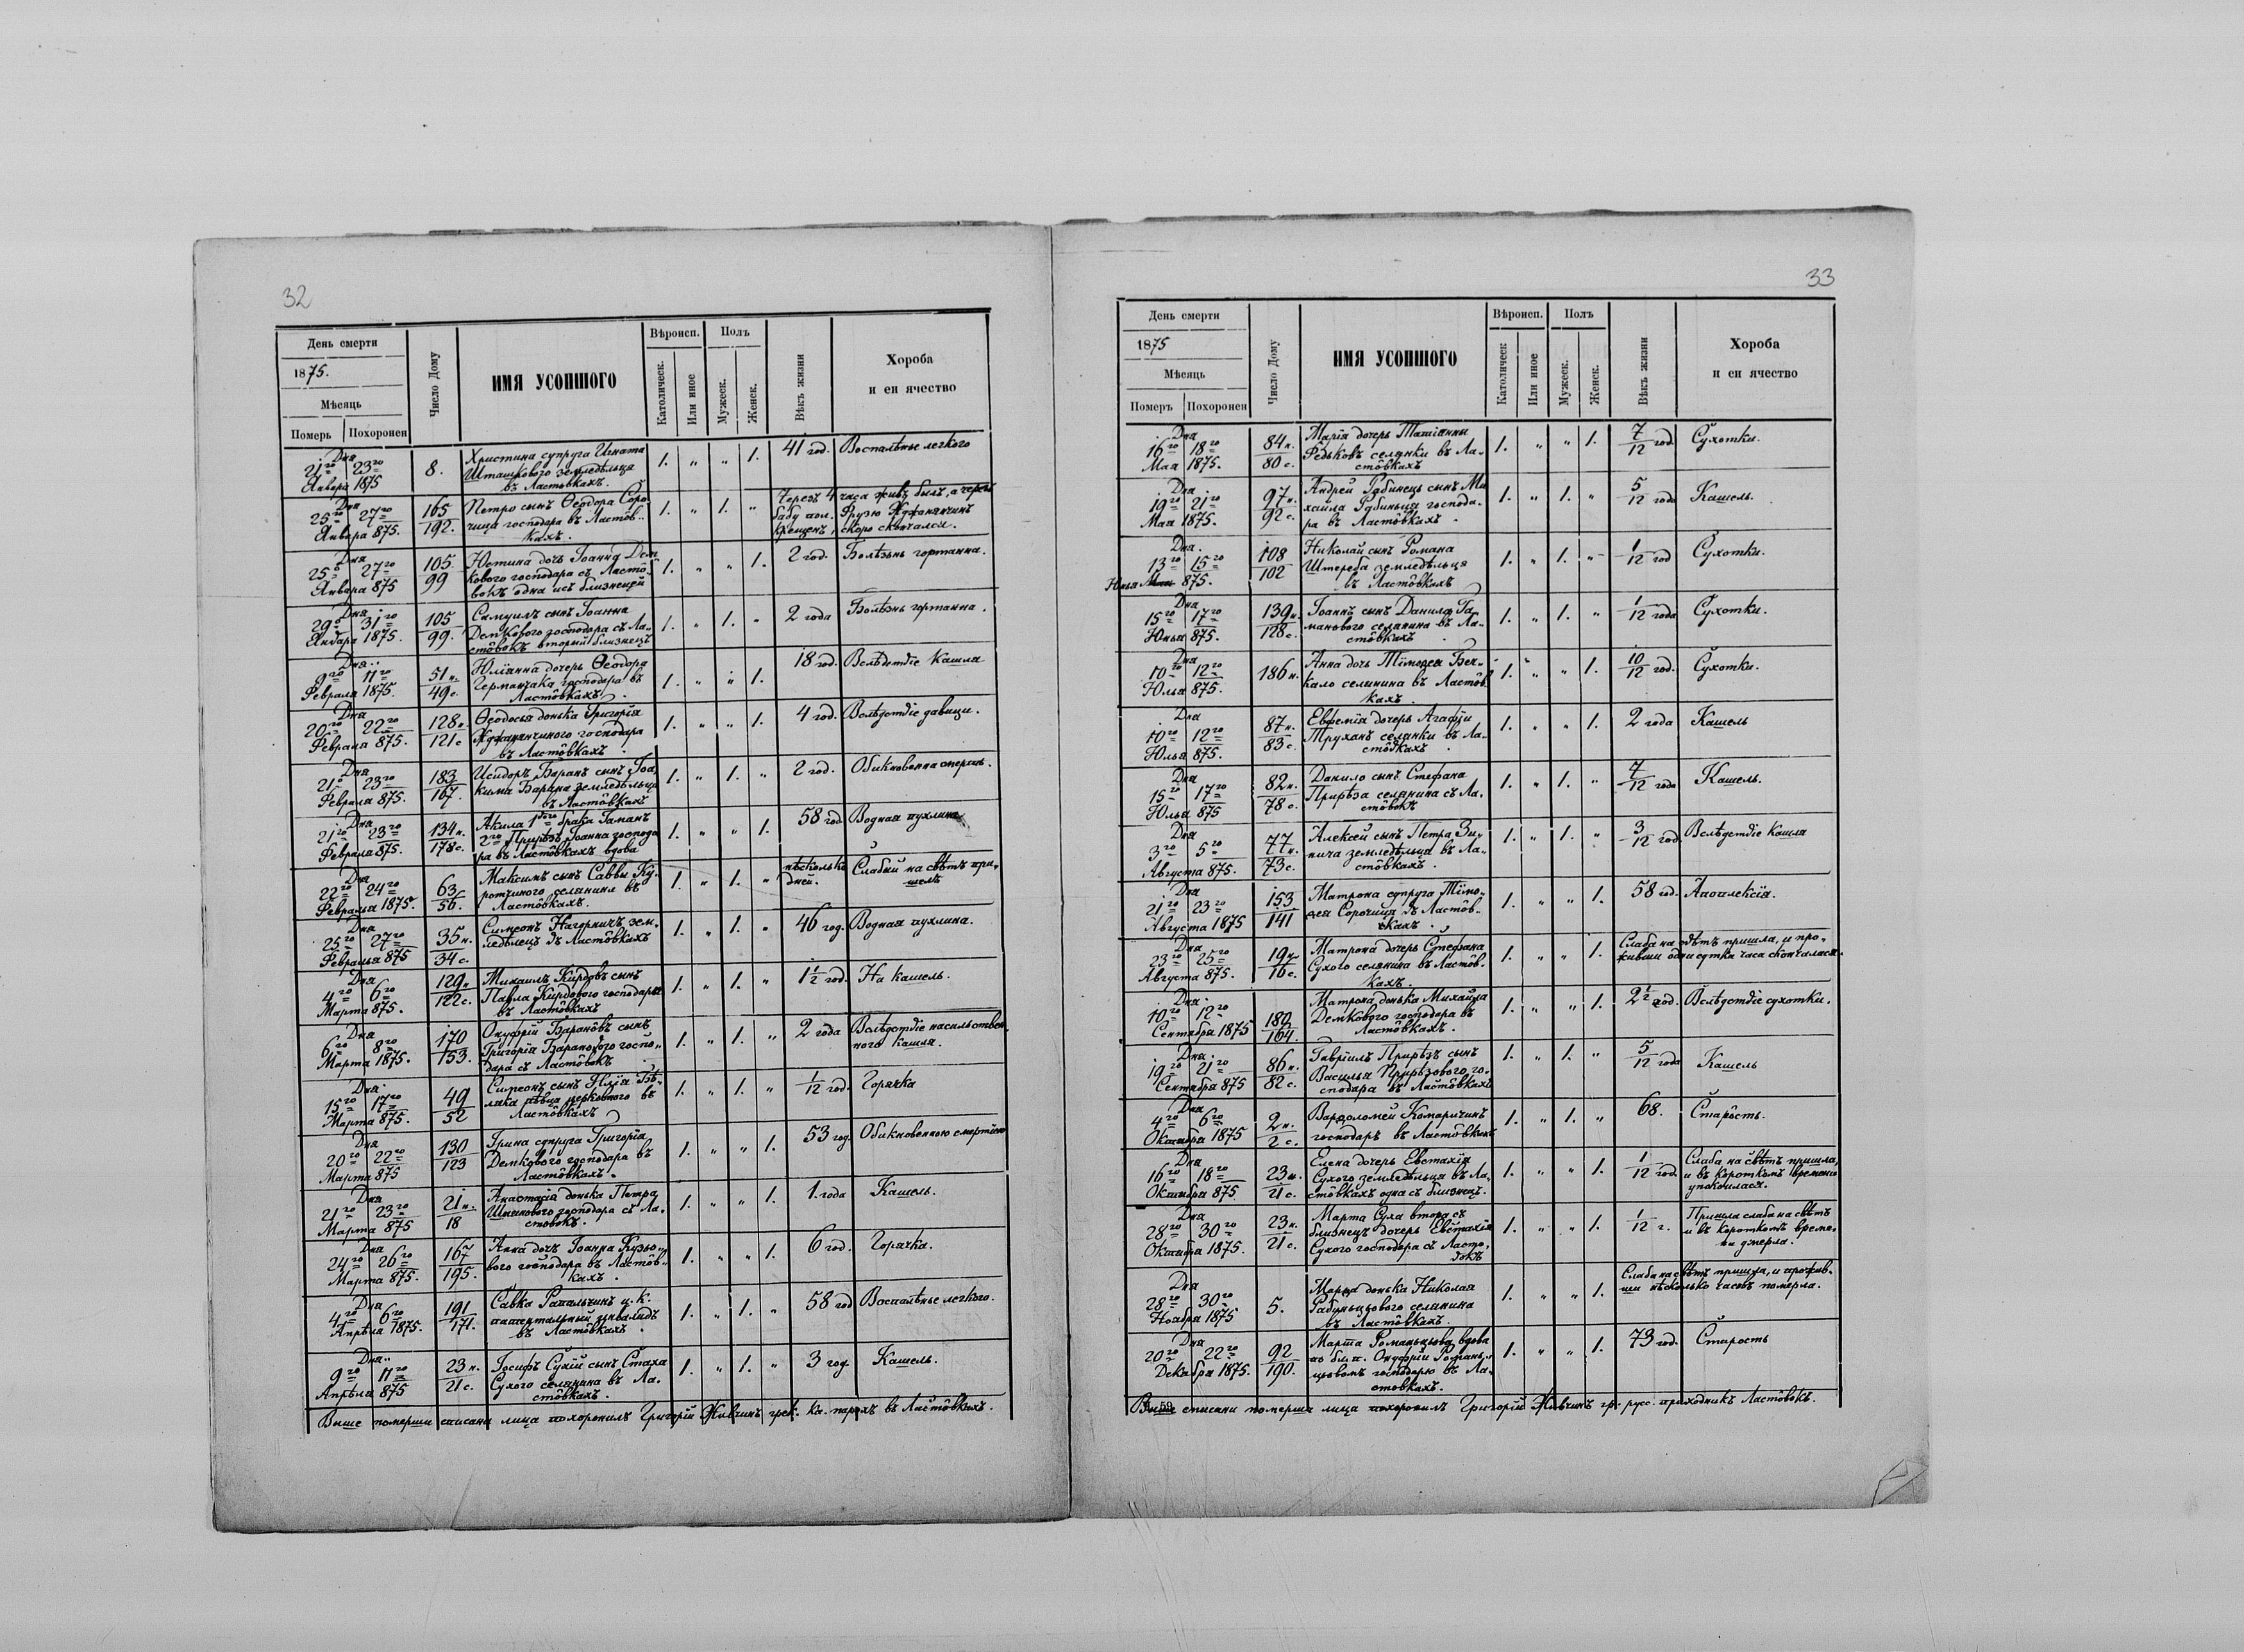 32
День смерти
1875.
Мѣсяць
Померь Похоронен
Число Дому
ИМЯ УСОПШОГО
Вѣроисп.
Католическ.
Или иное
Полъ
Мужеск.
Женск.
Вѣкъ жизни
Хороба
и еи ячество
Дня
21го 23го
Января 1875
8.
Христина супруга Игната
Шташкового земледѣльца
въ Ластôвкахъ.
1. " " 1.
41 год.
Воспалѣнье легкого
Дня
25го 27го
Января 875.
165
192.
Петро сынъ Ѳеодора Соро-
чица господара въ Ластôв-
кахъ.
1. " 1. "
Черезъ 4 часа живъ былъ, а черезъ
бабу пол. Фрузю
крещенъ, скоро скончался.
Дня
25го 27го
Января 875
105
99
Юстина дочь Іоанна Дем-
кового господара съ Ластô-
вокъ одна исъ близнецей
1. " " 1.
2 год.
Болѣзнь гортанна.
Дня
29го 31го
Января 1875.
105
99.
Самуилъ сынъ Іоанна
Демкового господара съ Ла-
стôвокъ вторый близнецъ
1. " 1. "
2 года
Болѣзнь гортанна.
Дня
9го 11го
Февраля 1875.
51н.
49с.
Юліянна дочерь Ѳеодора
Германчака господара въ
Ластôвкахъ.
1. " " 1.
18 год.
Вслѣдствіе кашля
Дня
20го 22го
Февраля 875.
128н
121с
Ѳеодосья донька Григорія
господара
въ Ластôвкахъ.
1. " " 1.
4 год.
Вслѣдствіе давици.
Дня
21го 23го
Февраля 875.
183
167.
Исидоръ Баранъ сынъ Іоа-
кима Барана земледѣльца
въ Ластôвкахъ
1. " 1. "
2 год.
Обикновенна смерть.
Дня
21го 23го
Февраля 875.
134н.
178с.
Акила 1го брака Гаманъ
2го Прирѣзъ Іоанна господа
ра въ Ластôвкахъ вдова
1. " " 1.
58 год
Водная пухлина
Дня
22го 24го
Февраля 1875.
63
56.
Максимъ сынъ Саввы Ку-
ропчиного селянина въ
Ластôвкахъ.
1. " 1. "
нѣсколько
дней.
Слабый на свѣтъ при-
шелъ
Дня
25го 27го
Февраля 875
35н.
34с.
Симеонъ Нагорничъ зем-
ледѣлецъ въ Ластôвкахъ
1. " 1. "
46 год.
Водная пухлина.
Дня
4го 6го
Марта 875.
129н
122с.
Михаилъ Кирдôвъ сынъ
Павла Кирдового господара
въ Ластôвкахъ
1. " 1. "
1½ год.
На кашель.
Дня
6го 8го
Марта 1875.
170
153.
Онуфрій Баранôвъ сынъ
Григорія Баранового госпо-
дара съ Ластôвокъ
1. " 1. "
2 года
Вслѣдствіе насильствен-
ного кашля.
Дня
15го 17го
Марта 875.
49
52
Симеонъ сынъ Илія Бѣ-
лака пѣвца церковного въ
Ластôвкахъ
1. " 1. "
1/12 год.
Горячка
Дня
20го 22го
Марта 875
130
123
Ірина супруга Григорія
Демкового господара въ
Ластôвкахъ.
1. " " 1.
53 год.
Обикновенною смертію
Дня
21го 23го
Марта 875
21н.
18
Анастасія донька Петра
господара съ Ла-
стôвокъ.
1. " " 1.
1. года
Кашель.
Дня
24го 26го
Марта 875.
167
195.
Анна дочь Іоанна Кузьо-
вого господара въ Ластôв-
кахъ.
1. " " 1.
6 год.
Горячка.
Дня
4го 6го
Апрѣля 1875.
191
171.
Савка Рапальчинъ ц. к.
инвалидъ
въ Ластôвкахъ.
1. " 1. "
58 год
Воспалѣнье легкого.
Дня
9го 11го
Апрѣля 875
23 н.
21с.
Іосифъ Сухій сынъ Стаха
Сухого селянина въ Ла-
стôвкахъ.
1. " 1. "
3 год.
Кашель.
Више померши списани лица похоронилъ Григорій Живчинъ грек. ка. парохъ въ Ластôвкахъ.
33
День смерти
1875
Мѣсяць
Померъ Похоронен
Число Дому
ИМЯ УСОПШОГО
Вѣроисп.
Католическ
Или иное
Полъ
Мужеск.
Женск.
Вѣкъ жизни
Хороба
и еи ячество
Дня
16го 18го
Мая 1875.
84н.
80с.
Марія дочерь Татіянны
Федьковъ селянки въ Ла-
стôвкахъ
1. " " 1.
7/12 год
Сухотки.
Дня
19го 21го
Мая 1875.
97н.
92с.
Андрей Рабинецъ сынъ Ми
хаила Рабиньця господа-
ра въ Ластôвкахъ.
1. " 1. "
5/12 года
Кашель.
Дня.
13го 15го
Юнья Мая 875.
108
102
Николай сынъ Романа
Штереба земледѣльця
въ Ластôвкахъ
1. " 1. "
1/12 год
Сухотки.
Дня
15го 17го
Юнья 875.
139н.
128с.
Іоаннъ сынъ Данила Га-
манового селянина въ Ла-
стôвкахъ.
1. " 1. "
1/12 года
Сухотки.
Дня
10го 12го
Юлья 875.
186н.
Анна дочь Тімоѳея Бек-
кало селянина въ Ластôв
кахъ.
1. " " 1.
10/12 год.
Сухотки.
Дня
10го 12го
Юлья 875.
87н.
83с.
Евфемія дочерь Агафіи
Труханъ селянки въ Ла-
стôвкахъ.
1. " " 1.
2 года
Кашель
Дня
15го 17го
Юлья 875
82н.
78с.
Данило сынъ Стефана
Прирѣза селянина съ Ла-
стôвокъ
1. " 1. "
7/12 года
Кашель.
Дня
3го 5го
Августа 875.
77н.
73с.
Алексей сынъ Петра Зи-
нича земледѣльца въ Ла-
стôвкахъ.
1. " 1. "
3/12 год.
Вслѣдствіе кашля
Дня
21го 23го
Августа 1875
153
141
Матрона супруга Тімо-
ѳея Сорочиця въ Ластôв-
кахъ.
1. " " 1.
58 год.
Апоплексія.
Дня
23го 25го
Августа 875.
19н
16с.
Матрона дочерь Стефана
Сухого селянина въ Ластôв-
кахъ.
1. " " 1.
Слаба на свѣтъ пришла, и про-
живши одни сутка часа скончалася.
Дня
10го 12го
Сентября 1875
180
164.
Матрона донька Михаила
Демкового господара въ
Ластôвкахъ.
1. " " 1.
2½ год.
Вслѣдствіе сухотки.
Дня.
19го 21го
Сентября 875
86н.
82с.
Гавріилъ Прирѣзъ сынъ
Василья Прирѣзового го-
сподара въ Ластôвкахъ
1. " 1. "
5/12 года
Кашель
Дня
4го 6го
Октября 1875
2н.
2с.
Варѳоломей Комаричинъ
господаръ въ Ластôвкахъ
1. " 1. "
68.
Старôсть.
Дня
16го 18го
Октября 875
23н.
21с.
Елена дочерь Евстахія
Сухого земледѣльца въ Ла-
стôвкахъ одна съ близнецъ.
1. " " 1.
1/12 год
Слаба на свѣтъ пришла,
и въ короткомъ времени
упокоилася.
Дня
28го 30го
Октября 1875.
23н.
21с.
Марта Суха втора съ
близнецъ дочерь Евстахія
Сухого господара съ Ласто-
вокъ
1. " " 1.
1/12 г.
Пришла слаба на свѣтъ
и въ короткомъ време-
ни умерла.
Дня
28го 30го
Ноября 1875
5.
Марья донька Николая
Рабиньцьового селянина
въ Ластôвкахъ.
1. " " 1.
Слаба на свѣтъ пришла, и прожив-
ши нѣсколько часовъ померла.
Дня
20го 22го
Декабря 1875.
92
190.
Марта Романьцьова вдова
по бл.п. Онуфрій Романь-
цьовомъ господарю въ Ла-
стовкахъ.
1. " " 1.
73 год
Старость
Више списани померши лица похоронилъ Григорій Живчинъ гр. русс. приходникъ Ластôвокъ.